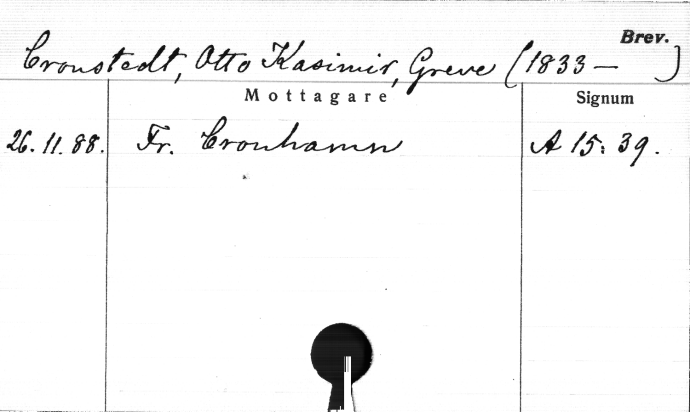 Brev.
Cronstedt, Otto Kasimir, Greve (1833 – )
Mottagare Signum
26.11.88. Fr. Cronhamn A 15: 39.